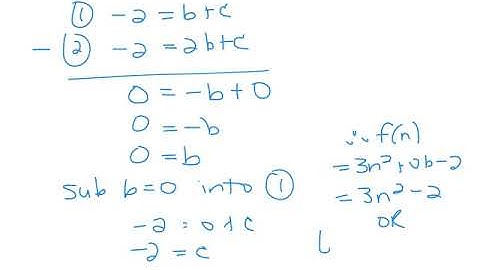 ① -2 = b+c
- ② -2 = 2b+c
0 = -b+0
0 = -b
0 = b
sub b=0 into ①
-2 = 0+c
-2 = c
∴ f(n)
= 3n²+0b-2
= 3n²-2
OR